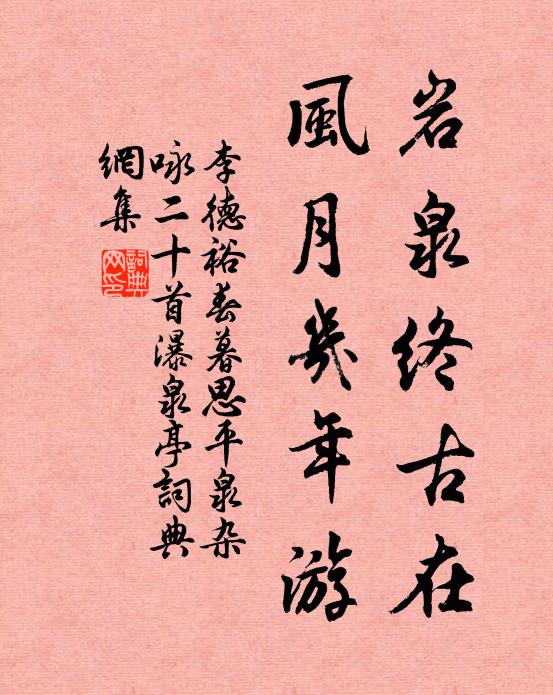 岩泉終古在
風月幾年游
李德裕春暮思平泉杂
咏二十首瀑泉亭詞典
網集
詞典網印